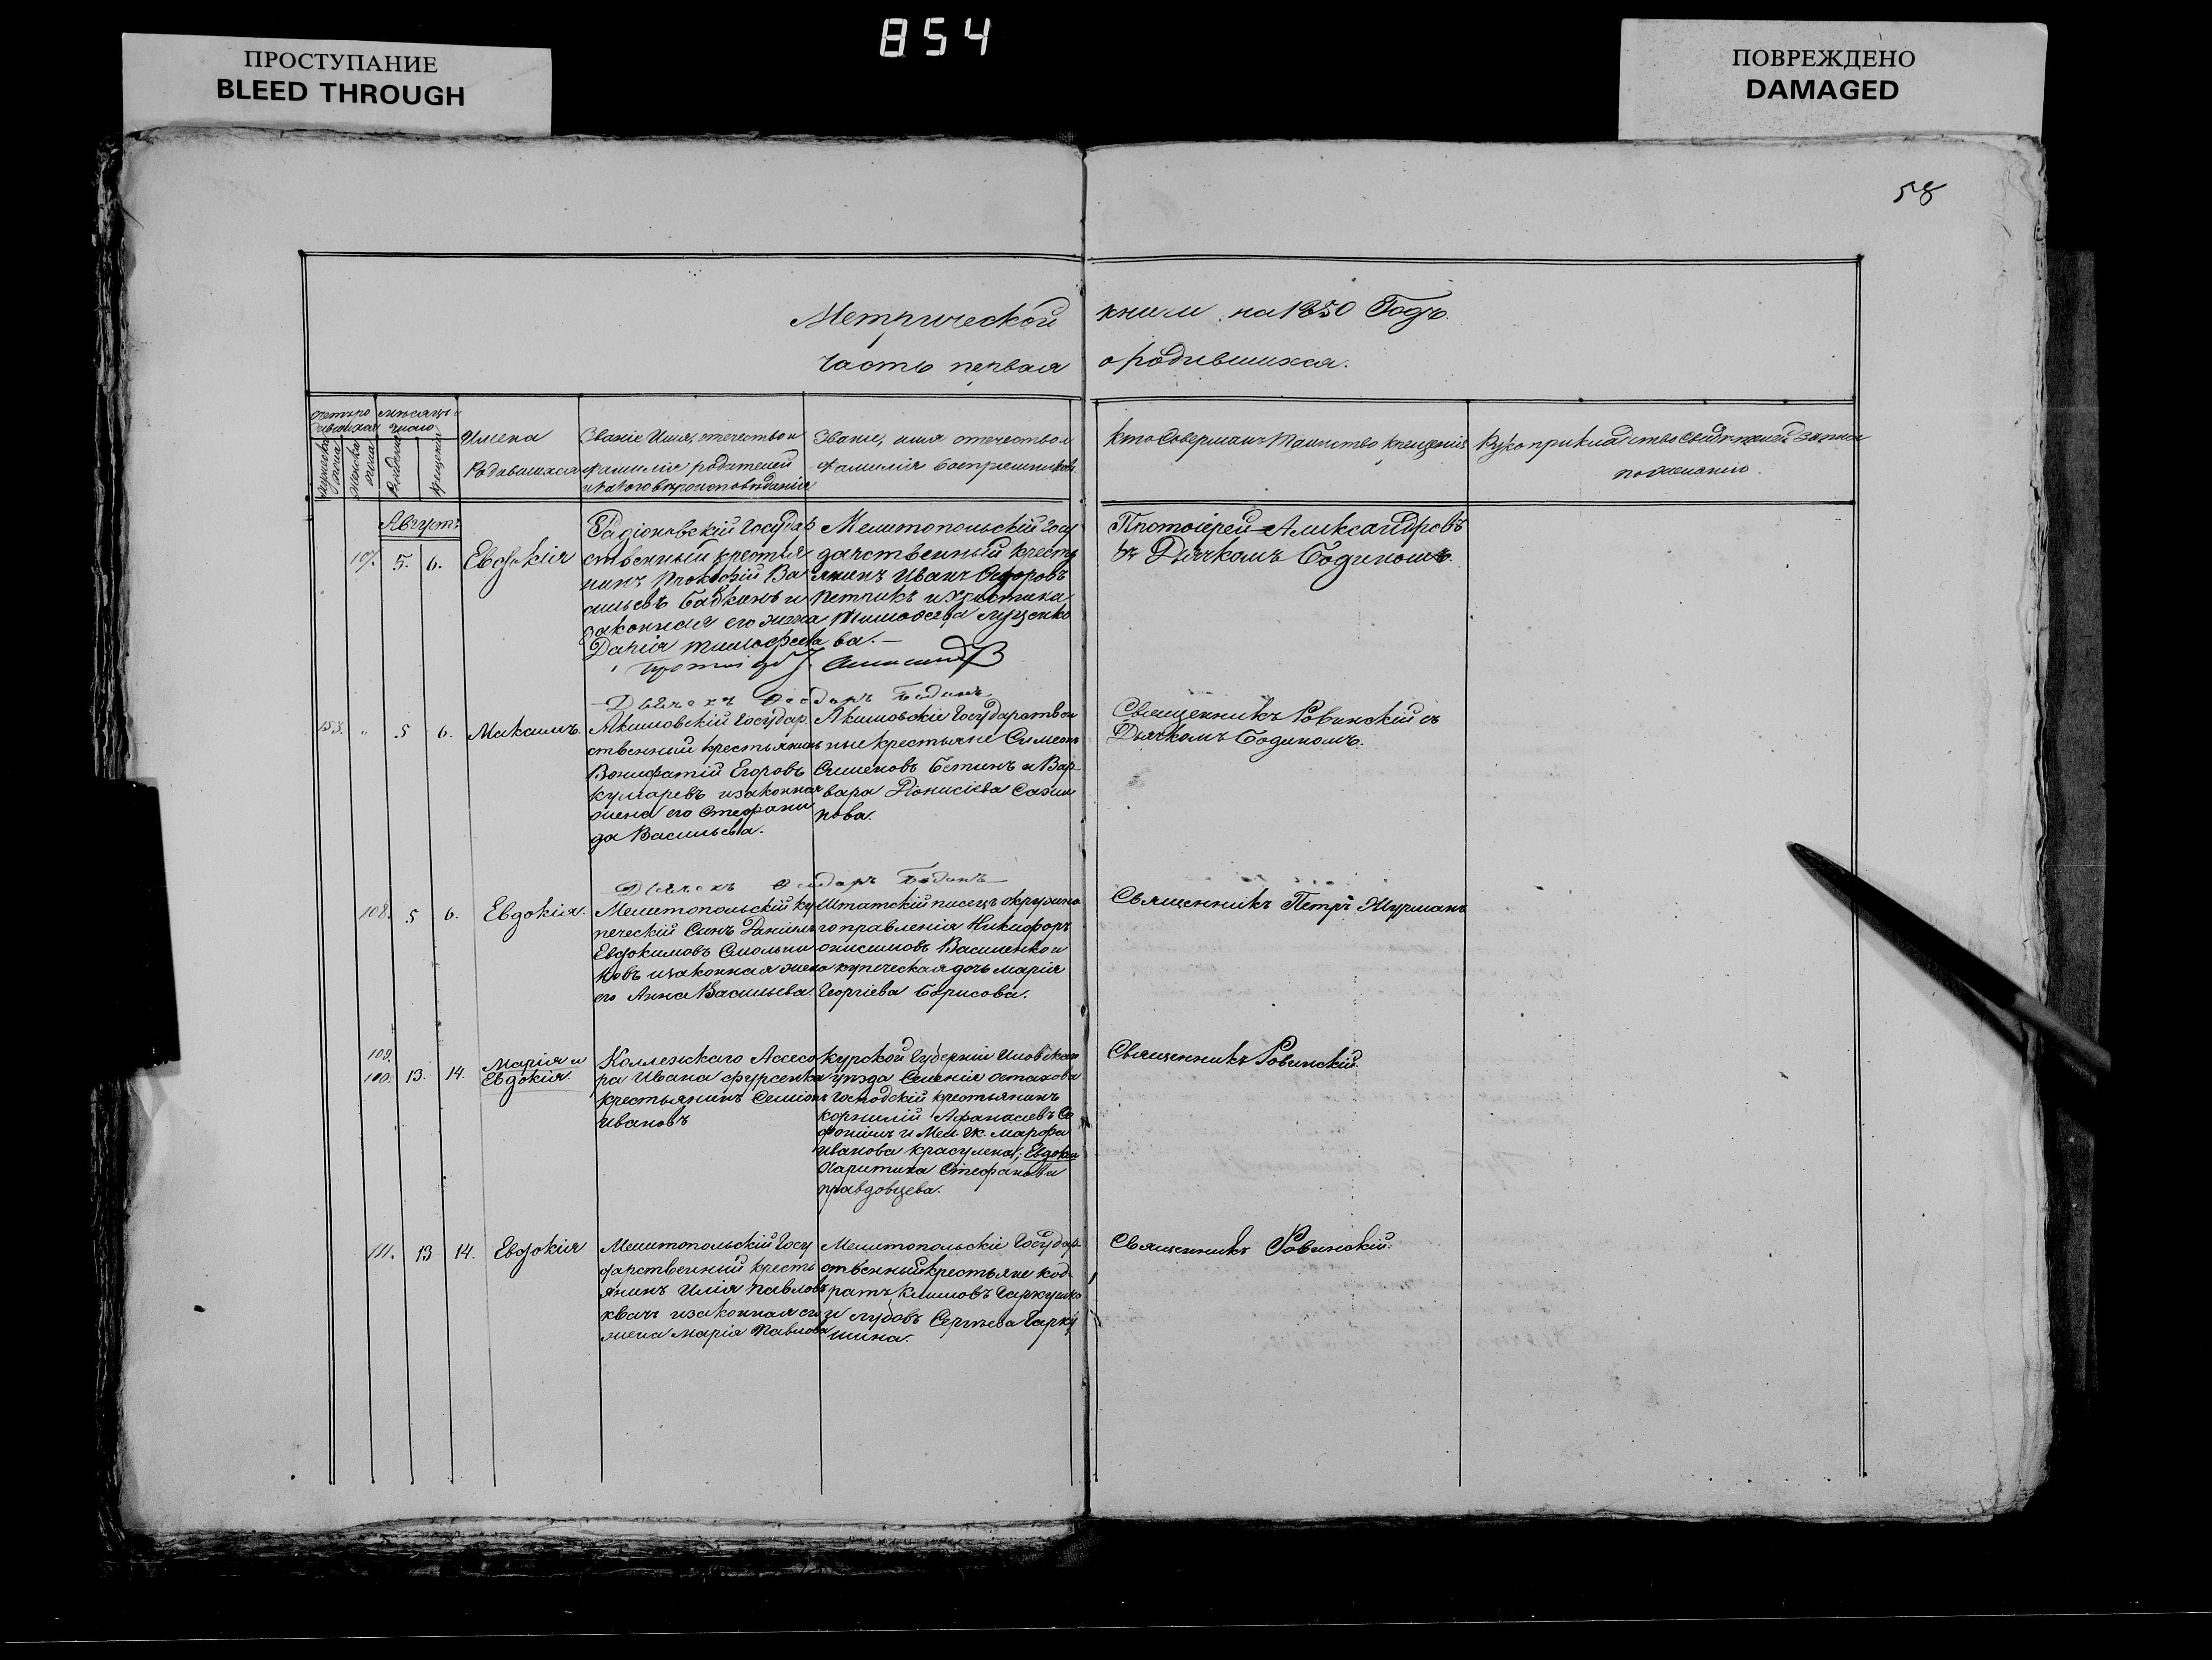 854
ПРОСТУПАНИЕ
BLEED THROUGH
ПОВРЕЖДЕНО
DAMAGED
58
Метрической книги на 1850 Годъ.
Часть первая о родившихся.
мѣсяцъ и
число
Имена
Родившихся
Званіе Имя, отчество и
фамилія родителей
и какого вѣроисповѣданія
Званіе, имя отчество и
Фамилія воспреемниковъ
Кто совершалъ таинство крещенія
Рукоприкладство свидѣтелей записи
по желанію
Августъ
107. 5. 6. Евдокія
Радіоновскій Государ
ственный крестья
нинъ Прокофій Ва
сильевъ Бабкинъ и
законная его жена
Дарія Тимофеева
Мелитопольскій госу
дарственный кресть
янинъ Иванъ Федоровъ
Петрикъ и Христина
Тимофеева Луценко
ва.
Протоіерей Александровъ
съ Дьячкомъ Бодиномъ.
Дьячекъ Федоръ Бодинъ
153. " 5 6. Максимъ.
Акимовскій государ
ственный крестьянинъ
Вонифатій Егоровъ
Кумаревъ и законная
жена его Стефани
да Васильева.
Акимовскіе Государствен
ные крестьяне Симеонъ
Симеоновъ Бетинъ и Вар
вара Діонисіева
нова.
Священникъ Ровинскій съ
Дьячкомъ Бодиномъ.
Дьячекъ Федоръ Бодинъ
108. 5 6. Евдокія.
Мелитопольскій ку
печескій Сынъ Даніилъ
Евдокимовъ Смольни
ковъ и законная жена
его Анна Васильева.
Штатскій писецъ окружна
го правленія Никифоръ
онисимовъ Василенко и
купеческая дочь Марія
Георгіева Борисова.
Священникъ Петръ Журманъ
109.
100. 13. 14. Марія и
Евдокія.
Коллежкаго Ассесо
ра Ивана Фурсенка
крестьянинъ Семіонъ
Ивановъ
Курской Губерніи
уѣзда Селенія остахова
Господскій крестьянинъ
Корнилій Афанасіевъ
и Мел. Ж. Марфа
Иванова Красулена; Евдокіи
Харитина Стефанова
Правдовцева.
Священникъ Ровинскій.
111. 13 14. Евдокія
Мелитопольскій Госу
дарственный кресть
янинъ Илія Павловъ
Квачъ и законная его
жена Марія Павлова
Мелитопольскіе Государ
ственный крестьяне Код
ратъ Климовъ Гаркушко
и Любовь Сергѣева Гарку
шина.
Священникъ Ровинскій.